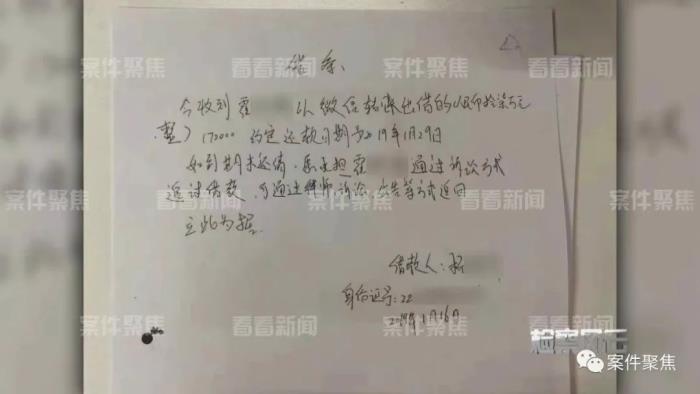 案件聚焦 看看新闻 案件聚焦 看看新闻
借条
今收到霍 以微信转账出借的人民币拾柒万元
(整) 170000 约定还款日期为2019年1月29日
如到期未还清,愿承担霍 通过诉讼方式
追讨借款,可通过律师诉讼、公告等方式追回
立此为据.
案件聚焦 看看新闻
借款人:
身份证号:22
2019年1月16日
案件聚焦 看看新闻 案件聚焦
案件聚焦